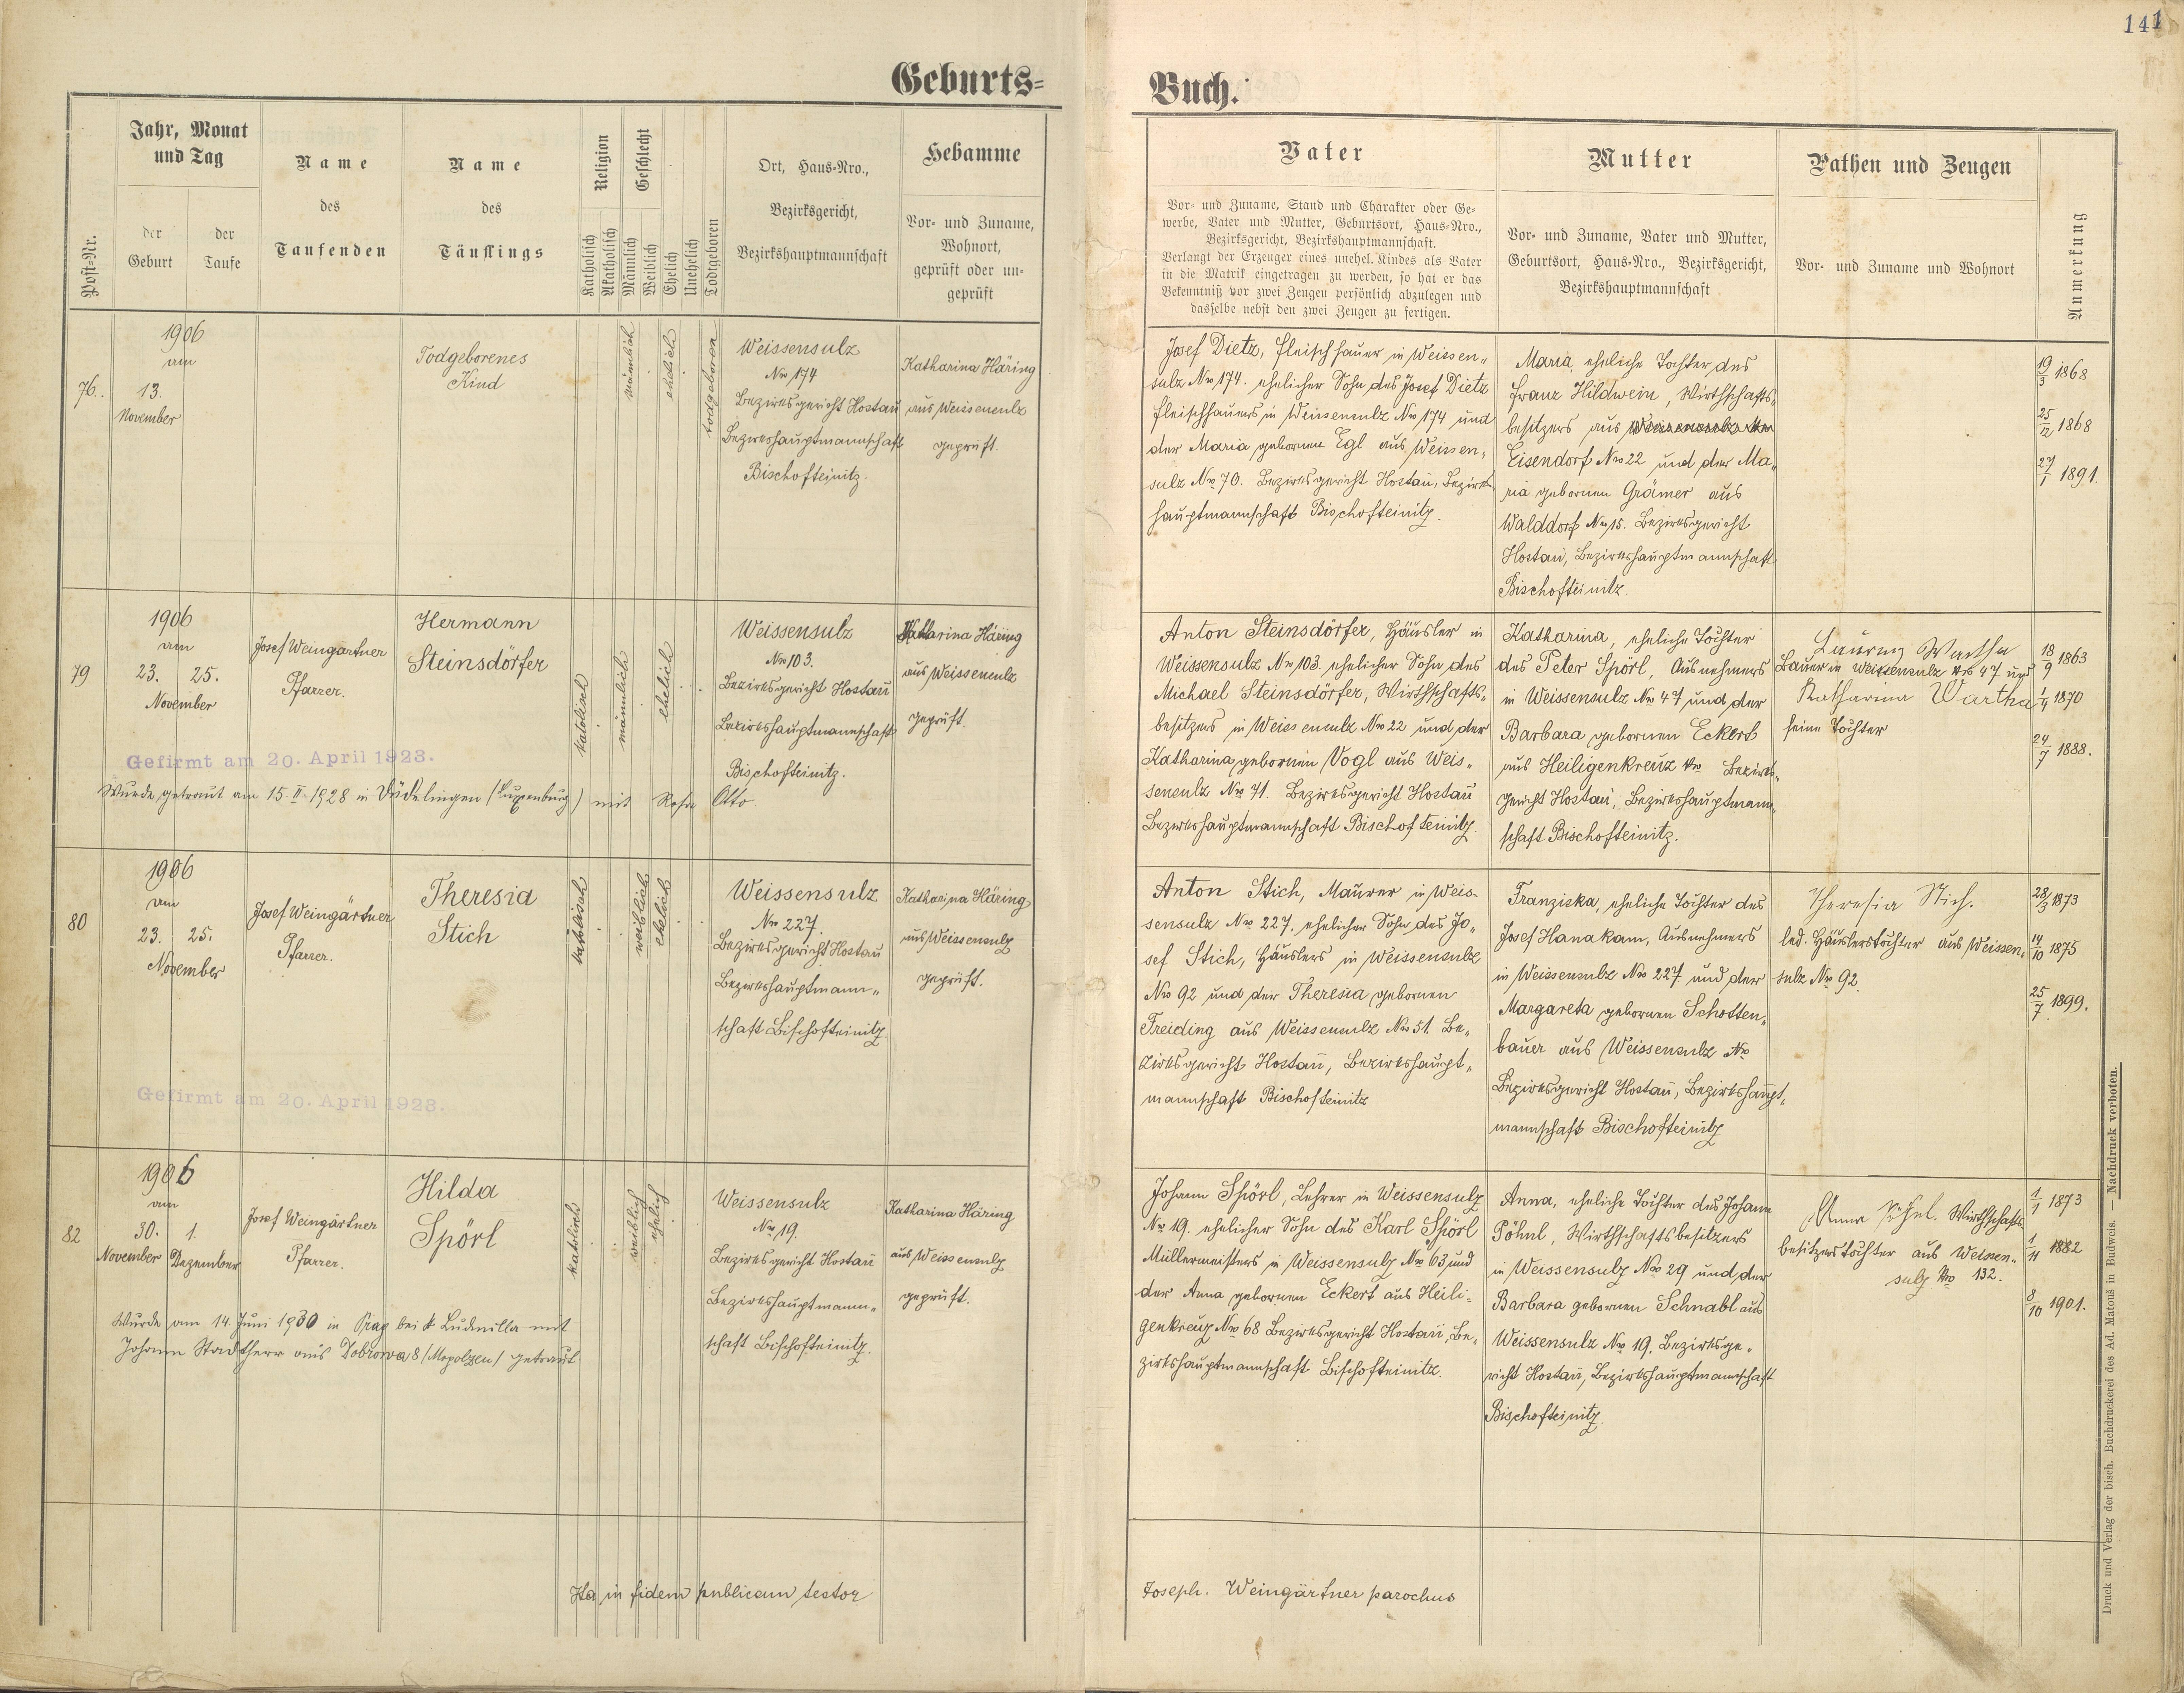 141
Geburts=
Buch.
Post-Nr.
Jahr, Monat
und Tag
der
Geburt
der
Taufe
Name
des
Taufenden
Name
des
Täuflings
Religion
Katholisch
Akatholisch
Geschlecht
Männlich
Weiblich
Ehelich
Unehelich
Todtgeboren
Ort, Haus-Nro.,
Bezirksgericht,
Bezirkshauptmannschaft
Hebamme
Vor- und Zuname,
Wohnort,
geprüft oder un-
geprüft
Vater
Vor- und Zuname, Stand und Charakter oder Ge-
werbe, Vater und Mutter, Geburtsort, Haus-Nro.,
Bezirksgericht, Bezirkshauptmannschaft.
Verlangt der Erzeuger eines unehel. Kindes als Vater
in die Matrik eingetragen zu werden, so hat er das
Bekenntniß vor zwei Zeugen persönlich abzulegen und
dasselbe nebst den zwei Zeugen zu fertigen.
Mutter
Vor- und Zuname, Vater und Mutter,
Geburtsort, Haus-Nro., Bezirksgericht,
Bezirkshauptmannschaft
Pathen und Zeugen
Vor- und Zuname und Wohnort
Anmerkung
76.
1906
am
13.
November
Todgeborenes
Kind
männlich
ehelich
todgeboren
Weissensulz
Nro 174
Bezirksgericht Hostau
Bezirkshauptmannschaft
Bischofteinitz.
Katharina Häring
aus Weissensulz
geprüft.
Josef Dietz, Fleischhauer in Weissen-
sulz Nro 174. ehelicher Sohn des Josef Dietz
Fleischhauers in Weissensulz Nro 174 und
der Maria gebornen Egl aus Weissen-
sulz Nro 70. Bezirksgericht Hostau, Bezirks-
hauptmannschaft Bischofteinitz.
Maria, eheliche Tochter des
Franz Hildwein, Wirthschafts-
besitzers aus Weissensulz Nro
Eisendorf Nro 22 und der Ma-
ria gebornen Grämer aus
Walddorf Nro 15. Bezirksgericht
Hostau, Bezirkshauptmannschaft
Bischofteinitz.
19/3 1868
25/12 1868
27/1 1891.
79
1906
am
23. 25.
November
Josef Weingärtner
Pfarrer.
Hermann
Steinsdörfer
katolisch
männlich
ehelich
Weissensulz
Nro 103.
Bezirksgericht Hostau
Bezirkshauptmannschaft
Bischofteinitz.
Katharina Häring
aus Weissensulz
geprüft.
Gefirmt am 20. April 1923.
Wurde getraut am 15. II. 1928 in Düdelingen (Luxenburg) mit Rosa Otto
Anton Steinsdörfer, Häusler in
Weissensulz Nro 103. ehelicher Sohn des
Michael Steinsdörfer, Wirthschafts-
besitzers in Weissensulz Nro 22 und der
Katharina gebornen Vogl aus Weis-
sensulz Nro 71. Bezirksgericht Hostau
Bezirkshauptmannschaft Bischofteinitz.
Katharina, eheliche Tochter
des Peter Spörl, Ausnehmers
in Weissensulz Nro 47 und der
Barbara gebornen Eckert
aus Heiligenkreuz Nro Bezirks-
gericht Hostau, Bezirkshauptmann-
schaft Bischofteinitz.
Bauer in Weissensulz Nro 47 und
Katharina Wartha
seine Tochter
18/9 1863
1/4 1870
24/7 1888.
80
1906
am
23. 25.
November
Josef Weingärtner
Pfarrer.
Theresia
Stich
katolisch
weiblich
ehelich
Weissensulz
Nro 227.
Bezirksgericht Hostau
Bezirkshauptmann-
schaft Bischofteinitz.
Katharina Häring
aus Weissensulz
geprüft.
Gefirmt am 20. April 1923.
Anton Stich, Maurer in Weis-
sensulz Nro 227. ehelicher Sohn des Jo-
sef Stich, Häuslers in Weissensulz
Nro 92 und der Theresia gebornen
Freiding aus Weissensulz Nro 51. Be-
zirksgericht Hostau, Bezirkshaupt-
mannschaft Bischofteinitz
Franziska, eheliche Tochter des
Josef Hanakam, Ausnehmers
in Weissensulz Nro 227 und der
Margareta gebornen Schotten-
bauer aus Weissensulz Nro
Bezirksgericht Hostau, Bezirkshaupt-
mannschaft Bischofteinitz
Theresia Stich.
led. Häuslerstochter aus Weissen-
sulz Nro 92.
28/3 1873
14/10 1875
25/7 1899.
82
1906
am
30. 1.
November Dezember
Josef Weingärtner
Pfarrer.
Hilda
Spörl
katolisch
weiblich
ehelich
Weissensulz
Nro 19.
Bezirksgericht Hostau
Bezirkshauptmann-
schaft Bischofteinitz.
Katharina Häring
aus Weissensulz
geprüft.
Wurde am 14. Juni 1930 in Prag bei St Ludmilla mit
Johann Stadtherr aus Dobrowa 8 /Mogolzen/ getraut.
Johann Spörl, Lehrer in Weissensulz
Nro 19. ehelicher Sohn des Karl Spörl
Müllermeisters in Weissensulz Nro 63 und
der Anna gebornen Eckert aus Heili-
genkreuz Nro 68 Bezirksgericht Hostau, Be-
zirkshauptmannschaft Bischofteinitz.
Anna, eheliche Tochter des Johann
Pöhnl, Wirthschaftsbesitzers
in Weissensulz Nro 29 und der
Barbara gebornen Schnabl aus
Weissensulz Nro 19. Bezirksge-
richt Hostau, Bezirkshauptmannschaft
Bischofteinitz.
Anna Wirthschafts-
besitzerstochter aus Weissen-
sulz Nro 132.
1/1 1873
1/11 1882
8/10 1901.
Ita in fidem publicam testor
Joseph. Weingärtner parochus
Druck und Verlag der bisch. Buchdruckerei des Ad. Matouš in Budweis. — Nachdruck verboten.